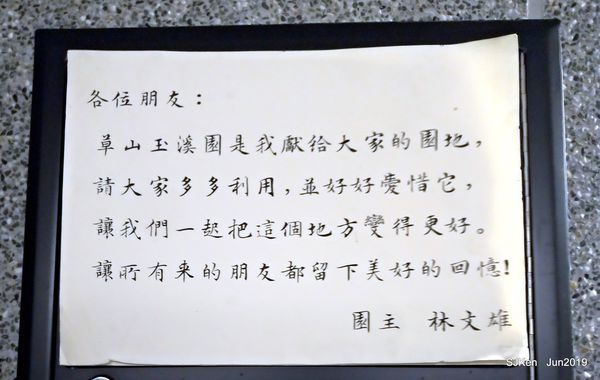 各位朋友：
草山玉溪園是我獻給大家的園地，
請大家多多利用，並好好愛惜它，
讓我們一起把這個地方變得更好。
讓所有来的朋友都留下美好的回憶!
園主　林文雄
SJKen Jun2019